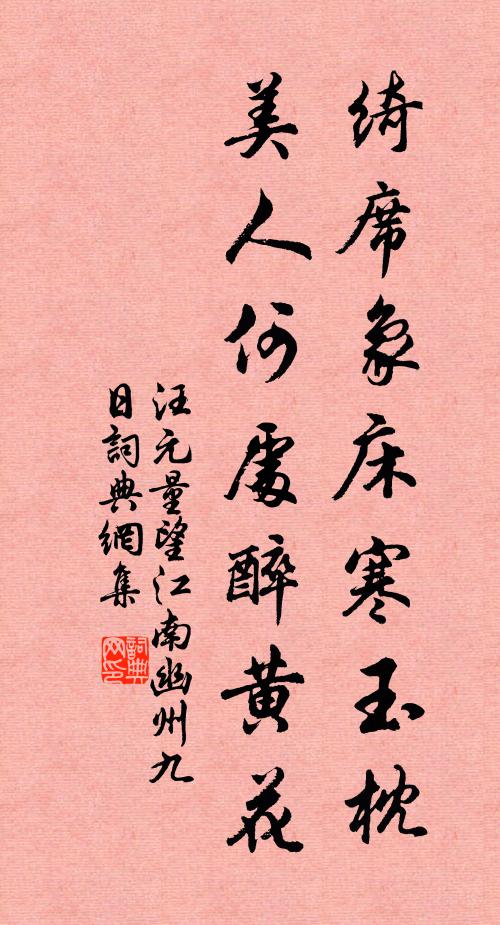 綺席象床寒玉枕
美人何處醉黃花
汪元量望江南幽州九
日詞典網集
詞典网印